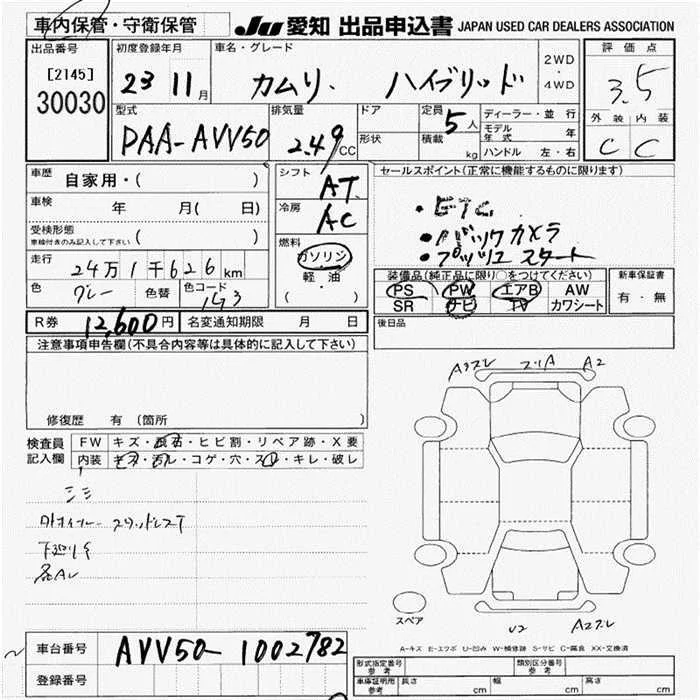 車内保管・守衛保管
JU 愛知 出品申込書 JAPAN USED CAR DEALERS ASSOCIATION
出品番号
[2145]
30030
初度登録年月
23 11月
車名・グレード
カムリ. ハイブリッド
2WD
・
4WD
評価点
3.5
外装 内装
C C
型式
DAA-AVV50
排気量
2.49 CC
ドア
形状
定員
5人
積載
kg
ディーラー・並行
モデル年式 年
ハンドル 左・右
車歴
自家用・( )
車検
年 月( 日)
受検形態
車検付きのみ記入して下さい ( )
走行
24万1千626km
色
グレー
色替
色コード
1G3
シフト
AT
冷房
AC
燃料
ガソリン
軽油
( )
セールスポイント(正常に機能するものに限ります)
・ETC
・バックカメラ
・プッシュスタート
装備品(純正品に限り○をつけてください)
PS PW エアB AW
SR ナビ TV カワシート
新車保証書
有・無
R券 12,600円
名変通知期限 月 日
後日品
注意事項申告欄(不具合内容等は具体的に記入して下さい)
修復歴 有 (箇所 )
検査員
記入欄
FW キズ・飛石・ヒビ割・リペア跡・X要
内装 キズ・汚レ・コゲ・穴・スレ・キレ・破レ
下廻りキ
A2
スペア
U2
A-キズ E-エクボ U-凹み W-補修跡 S-サビ C-腐食 XX-交換済
車台番号
AVV50-1002782
登録番号
形式指定番号
参考
類別区分番号
参考
車庫証明用
参考
長さ cm
幅 cm
高さ cm